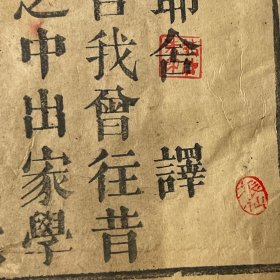 耶舍 譯
言我曾往昔
之中出家學